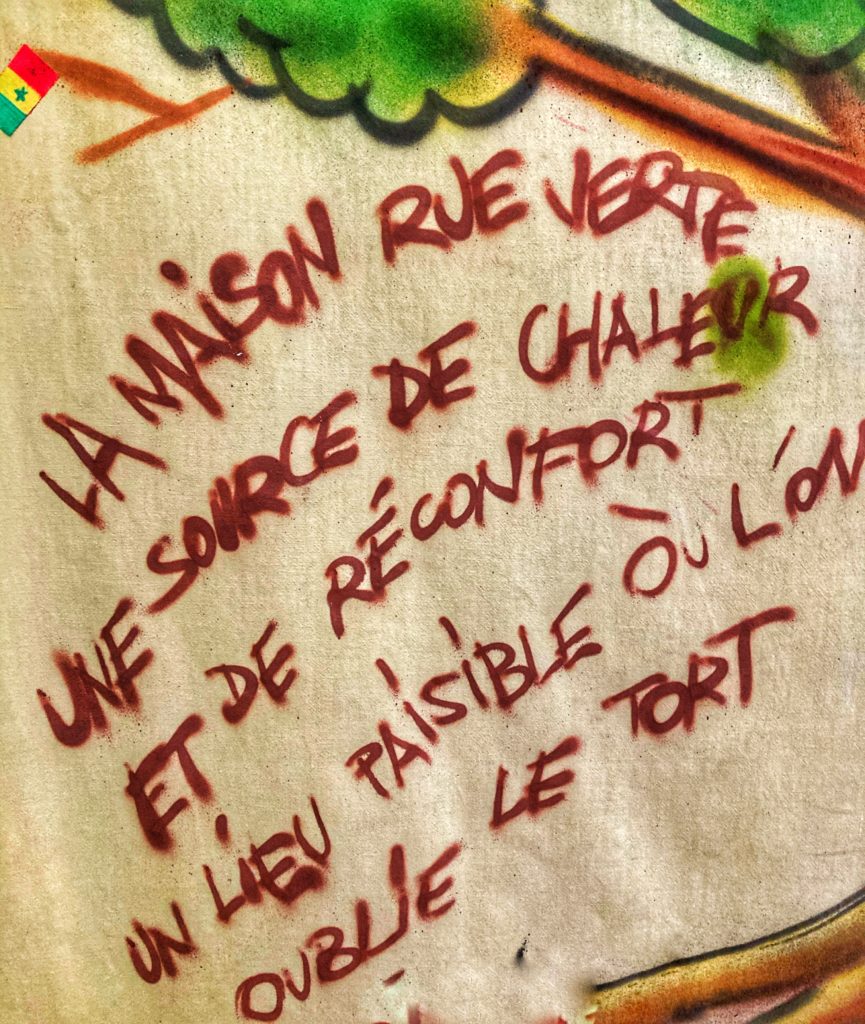 LA MAISON RUE VERTE
UNE SOURCE DE CHALEUR
ET DE RÉCONFORT
UN LIEU PAISIBLE OÙ L'ON
OUBLIE LE TORT